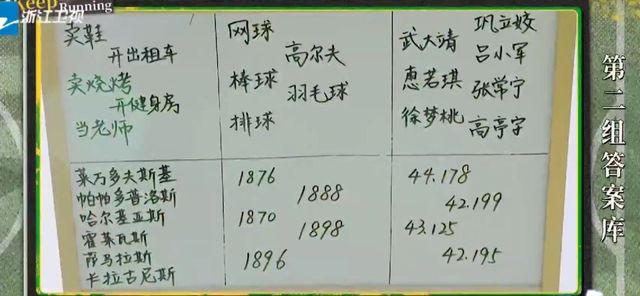 Keep Running
浙江卫视
卖鞋
开出租车
卖烧烤
开健身房
当老师
网球
高尔夫
棒球
羽毛球
排球
巩立姣
武大靖
吕小军
惠若琪
张常宁
徐梦桃
高亭宇
莱万多夫斯基
帕帕多普洛斯
哈尔基亚斯
霍莱瓦斯
萨马拉斯
卡拉古尼斯
1876
1888
1870
1898
1896
44.178
42.199
43.125
42.195
第二组答案库